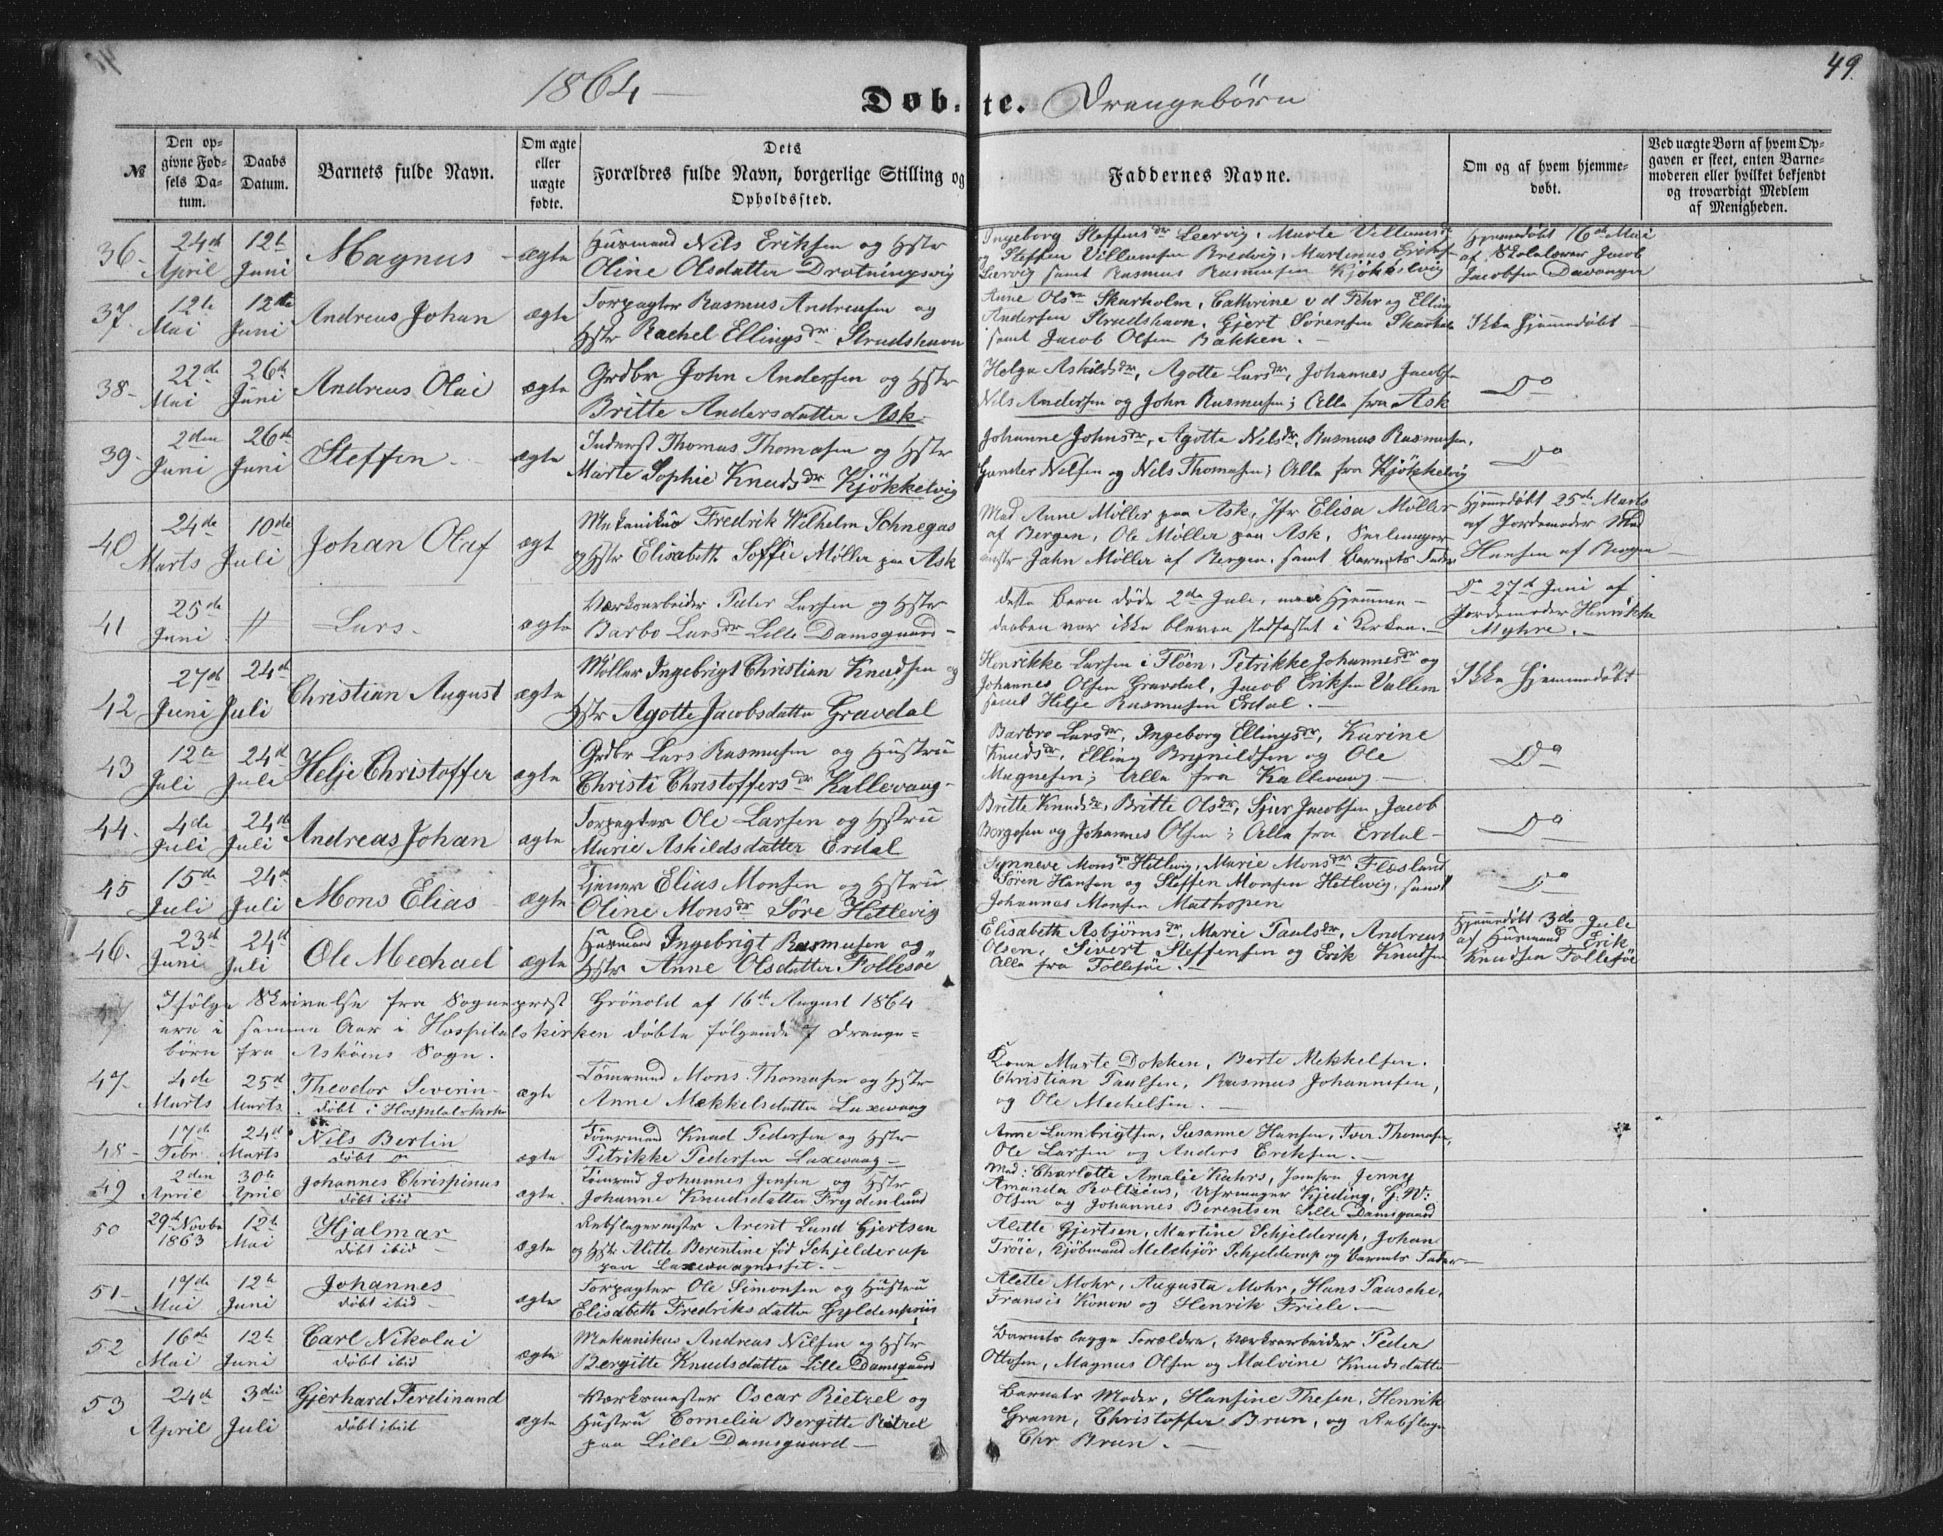 49
1864 —
Døbte. Drengebørn
№
Den opgivne Fødsels Datum.
Daabs Datum.
Barnets fulde Navn.
Om ægte eller uægte fødte.
Dets Forældres fulde Navn, borgerlige Stilling og Opholdssted.
Faddernes Navne.
Om og af hvem hjemmedøbt.
Ved uægte Børn af hvem Opgaven er skeet, enten Barnemoderen eller hvilket bekjendt og troværdigt Medlem af Menigheden.
36 24de April 12te Juni Magnus ægte
Huusmand Nils Eriksen og Hstr
Oline Olsdatter Drotningsvig
Ingeborg Steffensdr Leervig, Marte Villumsdr
og Steffen Villumsen Bredvig, Martinus Eriks
Leervig samt Rasmus Rasmusen Kjøkkelvig
Hjemmedøbt 16de Mai
af Skolelærer Jacob
Jacobsen Davanger
37 12te Mai 12te Juni Andreas Johan ægte
Forpagter Rasmus Andreasen og
Hstr Rachel Ellingsdr Strudshavn
Anne Olsdr Skarholm, Cathrine v d Fehr og Elling
Andersen Strudshavn, Gjert Sørensen Skarholm
samt Jacob Olsen Bakken. —
Ikke hjemmedøbt
38 22de Mai 26de Juni Andreas Olai ægte
Grdbr John Andersen og Hstr
Britte Andersdatter Ask.
Helga Askildsdr, Agotte Larsdr, Johannes Jacobs
Nils Andersen og John Rasmusen; Alle fra Ask
Do
39 2den Juni 26de Juni Steffen ægte
Inderst Thomas Thomasen og Hstr
Marte Sophie Knudsdr Kjøkkelvig
Johanne Johnsdr, Agotte Nilsdr, Rasmus Rasmusen,
Gunder Nelsen og Nils Thomasen; Alle fra Kjøkkelvig
Do
40 24de Marts 10de Juli Johan Olaf ægt
Mekanikus Fredrik Wilhelm Schnegas
og Hstr Elisabeth Soffie Møller paa Ask
Mad. Anne Møller paa Ask, Jfr Elisa Møller
af Bergen, Ole Møller paa Ask, Seilmager
mestr Jahn Møller af Bergen, samt Barnets Fader
Hjemmedøbt 25de Marts
af Jordemoder Mad
Hansen af Bergen
41 25de Juni // Lars. ægte
Værksarbeider Peder Larsen og Hstr
Barbo Larsdr Lille Damsgaard
dette Barn døde 2de Juli, men Hjemme-
daaben var ikke bleven stadfæstet i Kirken. —
Do 27de Juni af
Jordemoder Henrikke
Myhre. —
42 27de Juni 24de Juli Christian August ægte
Møller Ingebrigt Christian Knudsen og
Hstr Agotte Jacobsdatter Gravdal
Henrikke Larsen i Fløen, Petrikke Johannesdr og
Johannes Olsen Gravdal, Jacob Eriksen Vallem
samt Helje Rasmusen Erdal. —
Ikke hjemmedøbt
43 12te Juli 24de Juli Helje Christoffer ægte
Grdbr Lars Rasmusen og Hustru
Christi Christoffersdr Kallevaag
Barbro Larsdr, Ingeborg Ellingsdr, Karine
Knudsdr, Elling Brynildsen og Ole
Magnesen; Alle fra Kallevaag. —
Do
44. 4de Juli 24de Juli Andreas Johan ægte
Forpagter Ole Larsen og Hstru
Marie Askildsdatter Erdal
Britte Knudsdr, Britte Olsdr, Sjur Jacobsen Jacob
Borgosen og Johannes Olsen; Alle fra Erdal
Do
45 15de Juli 24de Juli Mons Elias ægte
Tjener Elias Monsen og Hstru
Oline Monsdr Søre Hetlevig
Synneve Monsdr Hetlevig, Marie Monsdr Flesland
Søren Hansen og Steffen Monsen Hetlevig, samt
Johannes Monsen Mathopen
Do
46. 23de Juni 24de Juli Ole Mechael ægte
Husmand Ingebrigt Rasmusen og
Hstr Anne Olsdatter Follesøe
Elisabeth Asbjørnsdr, Marie Paulsdr, Andreas
Olsen, Sivert Steffensen og Erik Knudsen
Alle fra Follesøe. —
Hjemmedøbt 3de Jule
af Husmand Erik
Knudsen Follesøe
Ifølge Skrivelse fra Sogneprest Grönvold af 16de August 1864
ere i samme Aar i Hospitalskirken døbte følgende 7 Drenge-
børn fra Askøens Sogn.
47. 4de Marts 25de Marts Theodor Severin
døbt i Hospitalskirke
ægte
Tømmermd Mons Thomasen og Hstr
Anne Mekkelsdatter Laxevaag
Kone Marte Dokken, Berte Mekkelsen.
Christian Paulsen, Rasmus Johannesen,
og Ole Mechelsen. —
48 17de Febr. 24de Marts Nils Bertin
døbt
ægte
Tømermand Knud Pedersen og Hstr
Petrikke Pedersen Laxevaag —
Anne Lambrigtsen, Susanne Hansen, Iver Thomasen,
Ole Larsen og Anders Eriksen. —
49 2den April 30te April Johannes Chrispinus
døbt ibid
ægte
Tømmermd Johannes Jensen og Hstr
Johanne Knudsdatter Frydenlund
Mad: Charlotte Amalie Kahrs, Jomfru Jenny
Amanda Boltzius, Uhrmager Kjeding, G. W:
Olsen og Johannes Berentsen Lille Damsgaard
50 29de Novbr 1863 12te Mai Hjalmar
døbt ibid
ægte
Rebslagermester Arent Lund Gjertsen
og Hstr Alette Berentine fød Schjelderup
paa Laxevaagnesset. —
Alette Gjertsen, Martine Schjelderup, Johan
Trøie, Kjøbmand Melchjør Schjelderup og Barnets Fader —
51 17de Mai 12te Juni Johannes
døbt ibid
ægte
Forpagter Ole Simonsen og Hustru
Elisabeth Fredriksdatter Gyldenpriis
Alette Mohr, Augusta Mohr, Hans Tausche,
Fransis Konow og Henrik Friele. —
52 16de Mai 12te Juni Carl Nikolai
døbt ibid
ægte
Mekanikus Andreas Nilsen og Hstr
Bergitte Knudsdatter Lille Damsgaard
Barnets begge Forældre, Værksarbeider Peder
Ottosen, Magnus Olsen og Malvine Knudsdatter
53 24de April 3die Juli Gjerhard Ferdinand
døbt ibid
ægte
Værksmester Oscar Rietzel og
Hustru Cornelia Bergitte Rietzel
paa Lille Damsgaard —
Barnets Moder, Hansine Thesen, Henrik
Grann, Christoffer Brun, og Rebslager
Chr Brun. —